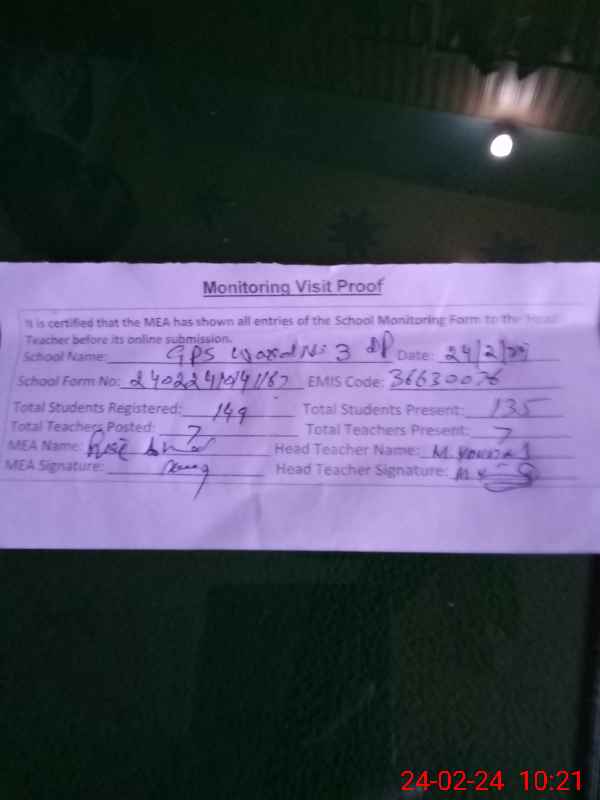 Monitoring Visit Proof
It is certified that the MEA has shown all entries of the School Monitoring Form to the Head
Teacher before its online submission.
School Name: GPS Ward No 3 Date: 24/2/
School Form No: EMIS Code: 36630076
Total Students Registered: 149 Total Students Present: 135
Total Teachers Posted: 7 Total Teachers Present: 7
MEA Name: Head Teacher Name: M. YOUNAS
MEA Signature: Head Teacher Signature: M.Y
24-02-24 10:21